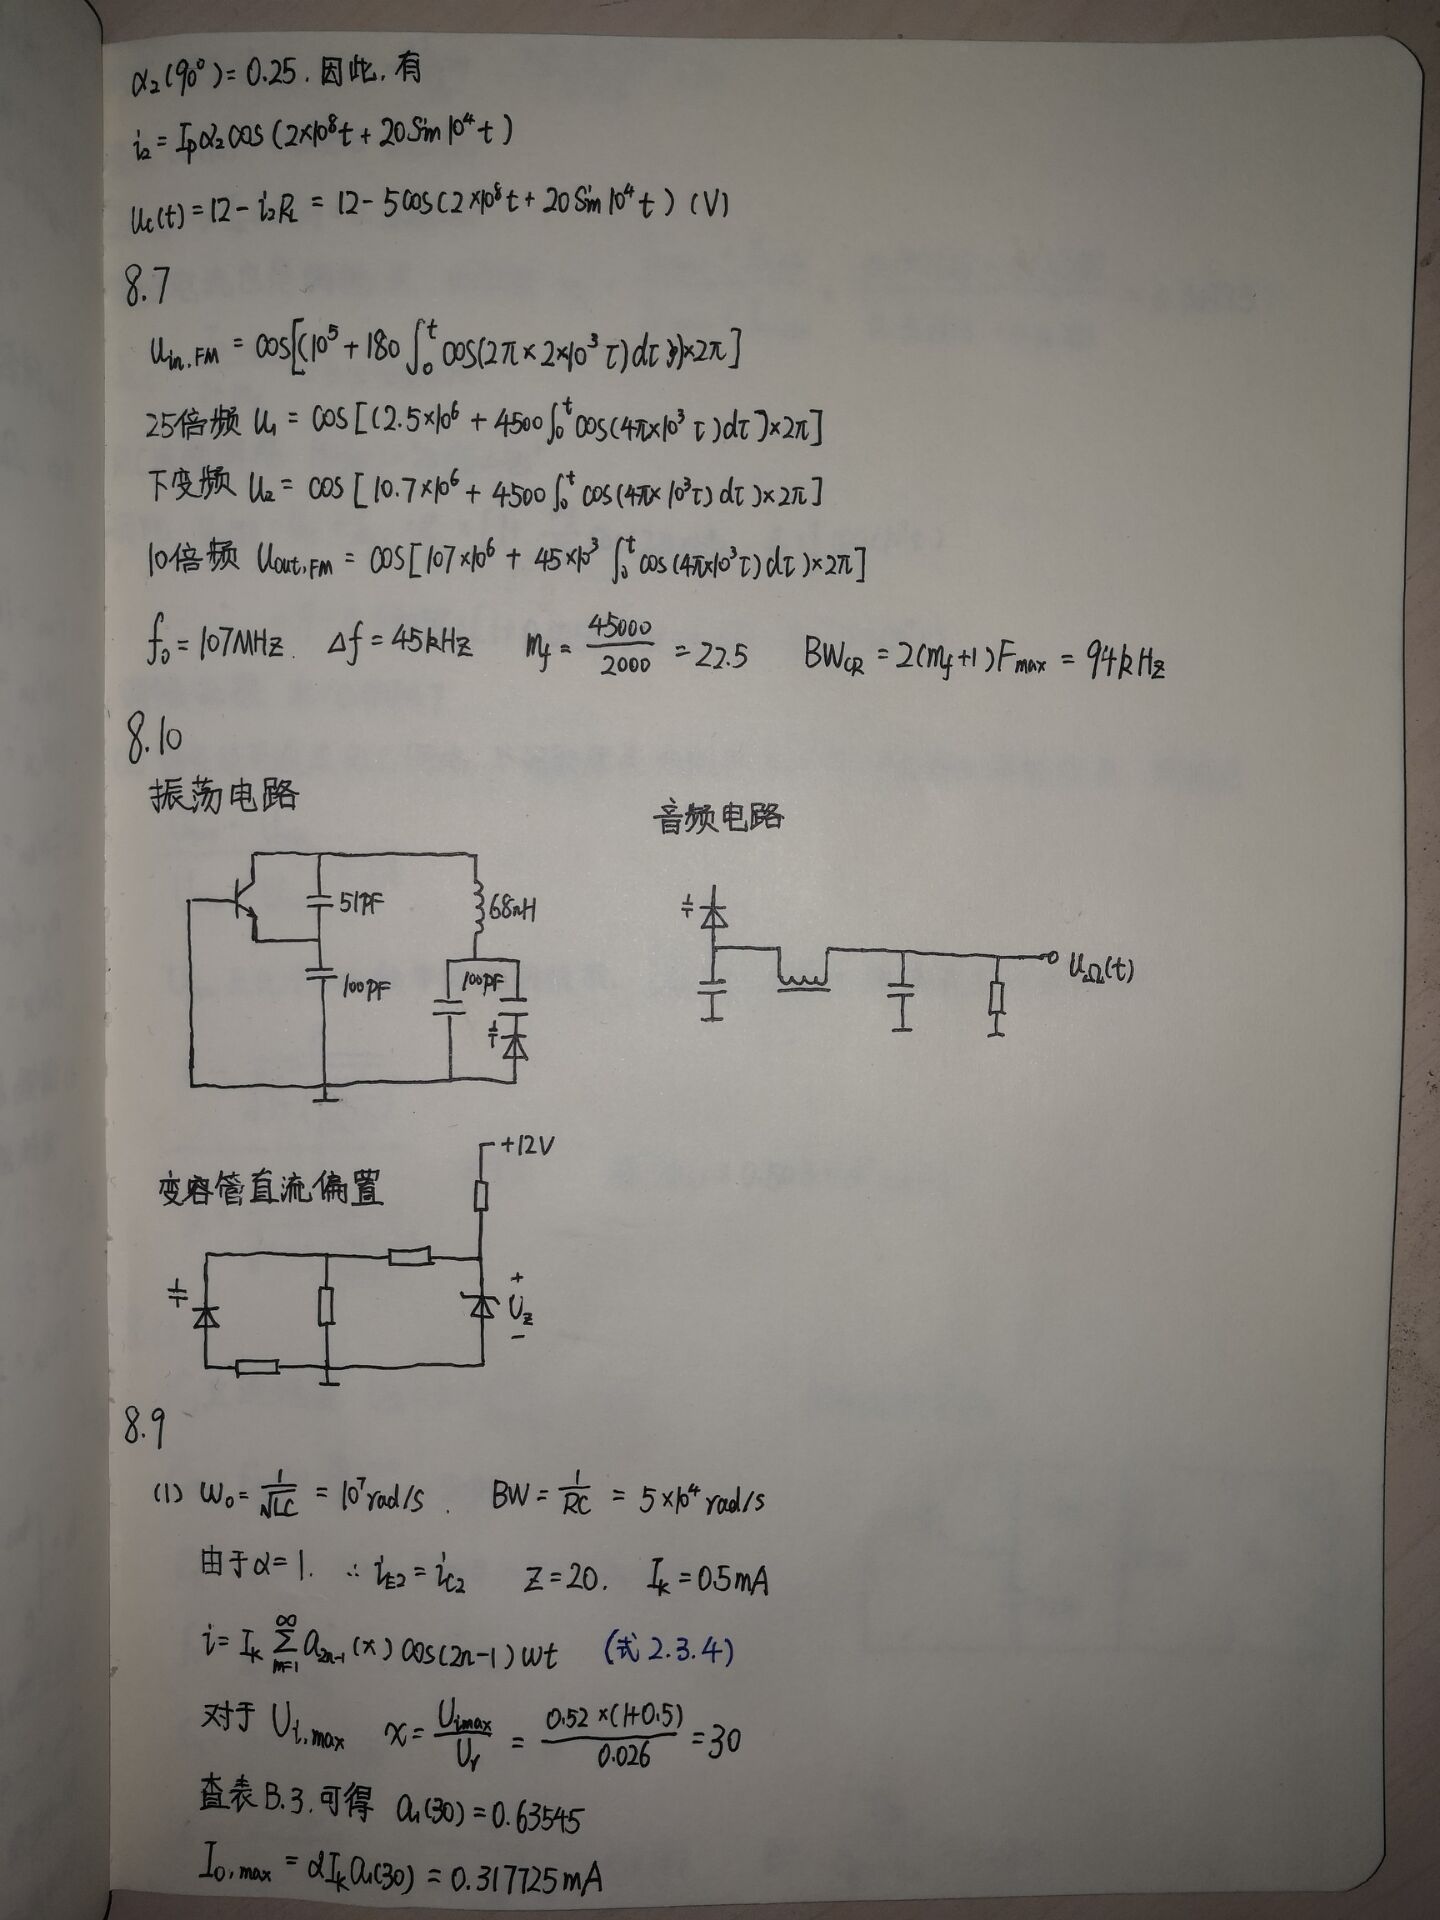 α₂(90°)=0.25. 因此, 有
i₂=Ipα₂cos(2×10⁸t+20Sin10⁴t)
uc(t)=12-i₂RL=12-5cos(2×10⁸t+20Sin10⁴t) (V)
8.7
Uin,FM = cos[(10⁵+180∫₀ᵗcos(2π×2×10³τ)dτ)×2π]
25倍频 U₁ = cos[(2.5×10⁶+4500∫₀ᵗcos(4π×10³τ)dτ)×2π]
下变频 U₂ = cos[10.7×10⁶+4500∫₀ᵗcos(4π×10³τ)dτ)×2π]
10倍频 Uout,FM = cos[107×10⁶+45×10³∫₀ᵗcos(4π×10³τ)dτ)×2π]
f₀=107MHz. Δf=45kHz mf=45000/2000=22.5 BWCR=2(mf+1)Fmax=94kHz
8.10
振荡电路
音频电路
51PF
68nH
100PF
100PF
UΩ(t)
+12V
变容管直流偏置
+
Uz
-
8.9
(1) ω₀=1/√LC=10⁷rad/s. BW=1/RC=5×10⁴rad/s
由于α=1. ∴iE2=iC2 Z=20. Ik=0.5mA
i=Ik∑(n=1→∞)a₂ₙ₋₁(x)cos(2n-1)ωt (式2.3.4)
对于Ui,max x=Uimax/Ur=0.52×(1+0.5)/0.026=30
查表B.3.可得 a₁(30)=0.63545
I₀,max=αIka₁(30)=0.317725mA